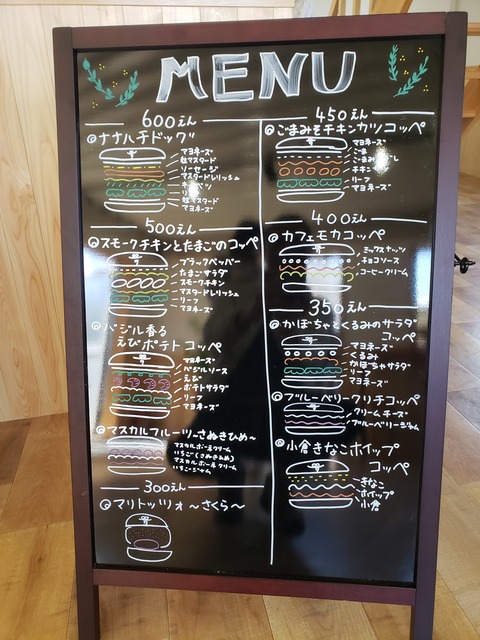 MENU
600えん
ナナハチドッグ
マヨネーズ
粒マスタード
ソーセージ
マスタードレリッシュ
リーフ
粒マスタード
マヨネーズ
500えん
スモークチキンとたまごのコッペ
ブラックペッパー
たまごサラダ
スモークチキン
マスタードレリッシュ
リーフ
マヨネーズ
バジル香る
えびポテトコッペ
マヨネーズ
バジルソース
えび
ポテトサラダ
リーフ
マヨネーズ
マスカルフルーツ~さぬきひめ~
マスカルポーネクリーム
いちご(さぬきひめ)
マスカルポーネクリーム
いちごジャム
300えん
マリトッツォ ~さくら~
450えん
ごまみそチキンカツコッペ
マヨネーズ
ごま
ごまみそ
チキン
リーフ
マヨネーズ
400えん
カフェモカコッペ
ミックスナッツ
チョコソース
コーヒークリーム
350えん
かぼちゃとくるみのサラダ
コッペ
マヨネーズ
くるみ
かぼちゃサラダ
リーフ
マヨネーズ
ブルーベリークリチコッペ
クリームチーズ
ブルーベリージャム
小倉きなこホイップ
コッペ
きなこ
ホイップ
小倉